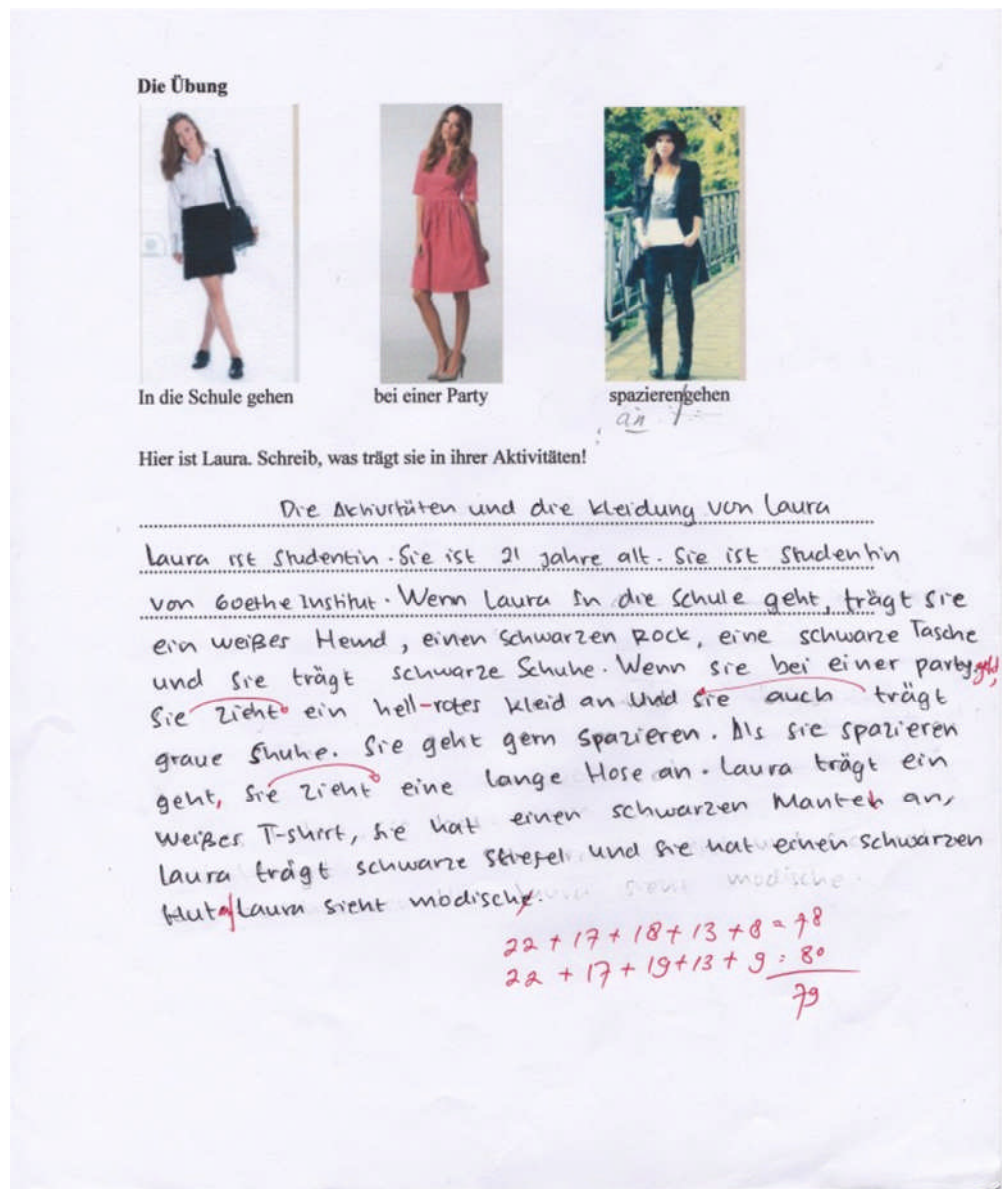 Die Übung
In die Schule gehen
bei einer Party
spazieren/gehen
an
Hier ist Laura. Schreib, was trägt sie in ihrer Aktivitäten!
Die Aktivitäten und die Kleidung von Laura
Laura ist Studentin. Sie ist 21 Jahre alt. Sie ist Studentin
von Goethe Institut. Wenn Laura in die Schule geht, trägt sie
ein weißes Hemd, einen schwarzen Rock, eine schwarze Tasche
und sie trägt schwarze Schuhe. Wenn sie bei einer party geht,
Sie zieht ein hell-rotes Kleid an und sie auch trägt
graue Shuhe. Sie geht gern spazieren. Als sie spazieren
geht, sie zieht eine lange Hose an. Laura trägt ein
weißes T-shirt, sie hat einen schwarzen Mantel an,
Laura trägt schwarze Stiefel und sie hat einen schwarzen
Hut an Laura sieht modisch.
modische.
22 + 17 + 18 + 13 + 8 = 78
22 + 17 + 19 + 13 + 9 = 80
79